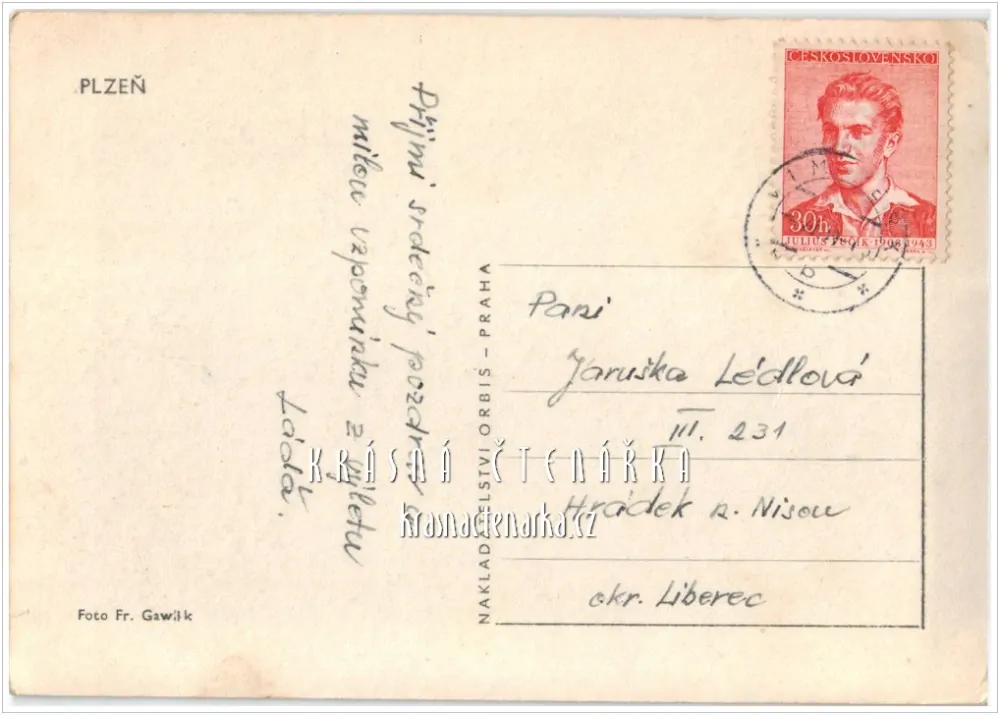 PLZEŇ
Přijmi srdečný pozdrav a
milou vzpomínku z výletu
Láďa.
Foto Fr. Gawlik
NAKLADATELSTVÍ ORBIS – PRAHA
ČESKOSLOVENSKO
30h
JULIUS FUČÍK · 1903-1943
Paní
Jaruška Lédlová
III. 231
Hrádek n. Nisou
okr. Liberec
KRÁSNÁ ČTENÁŘKA
krasnactenarka.cz